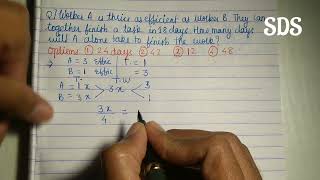 SDS
Q/ Worker A is thrice as efficient as worker B. They can
together finish a task in 18 days. How many days
will A alone take to finish the work?
Options ① 24 days ② 42 ③ 12 ④ 48
A = 3 Effic | T. = 1
B = 1 Effic | = 3
T. T.W
A = 1x 3x 3
B = 3x 1
3x/4 =